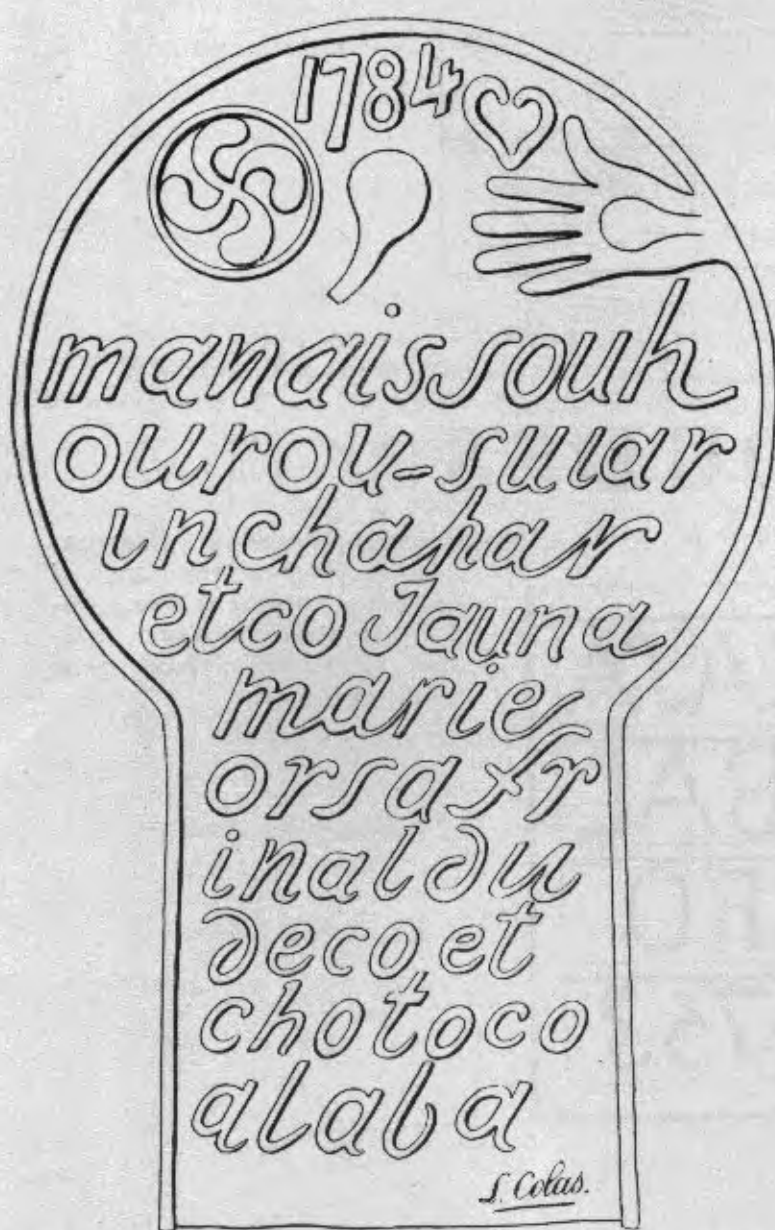 1784
manaissouh
ourou-suiar
inchahar
etco Jauna
marie
orsafr
inaldu
deco et
chotoco
alaba
L. Colas.